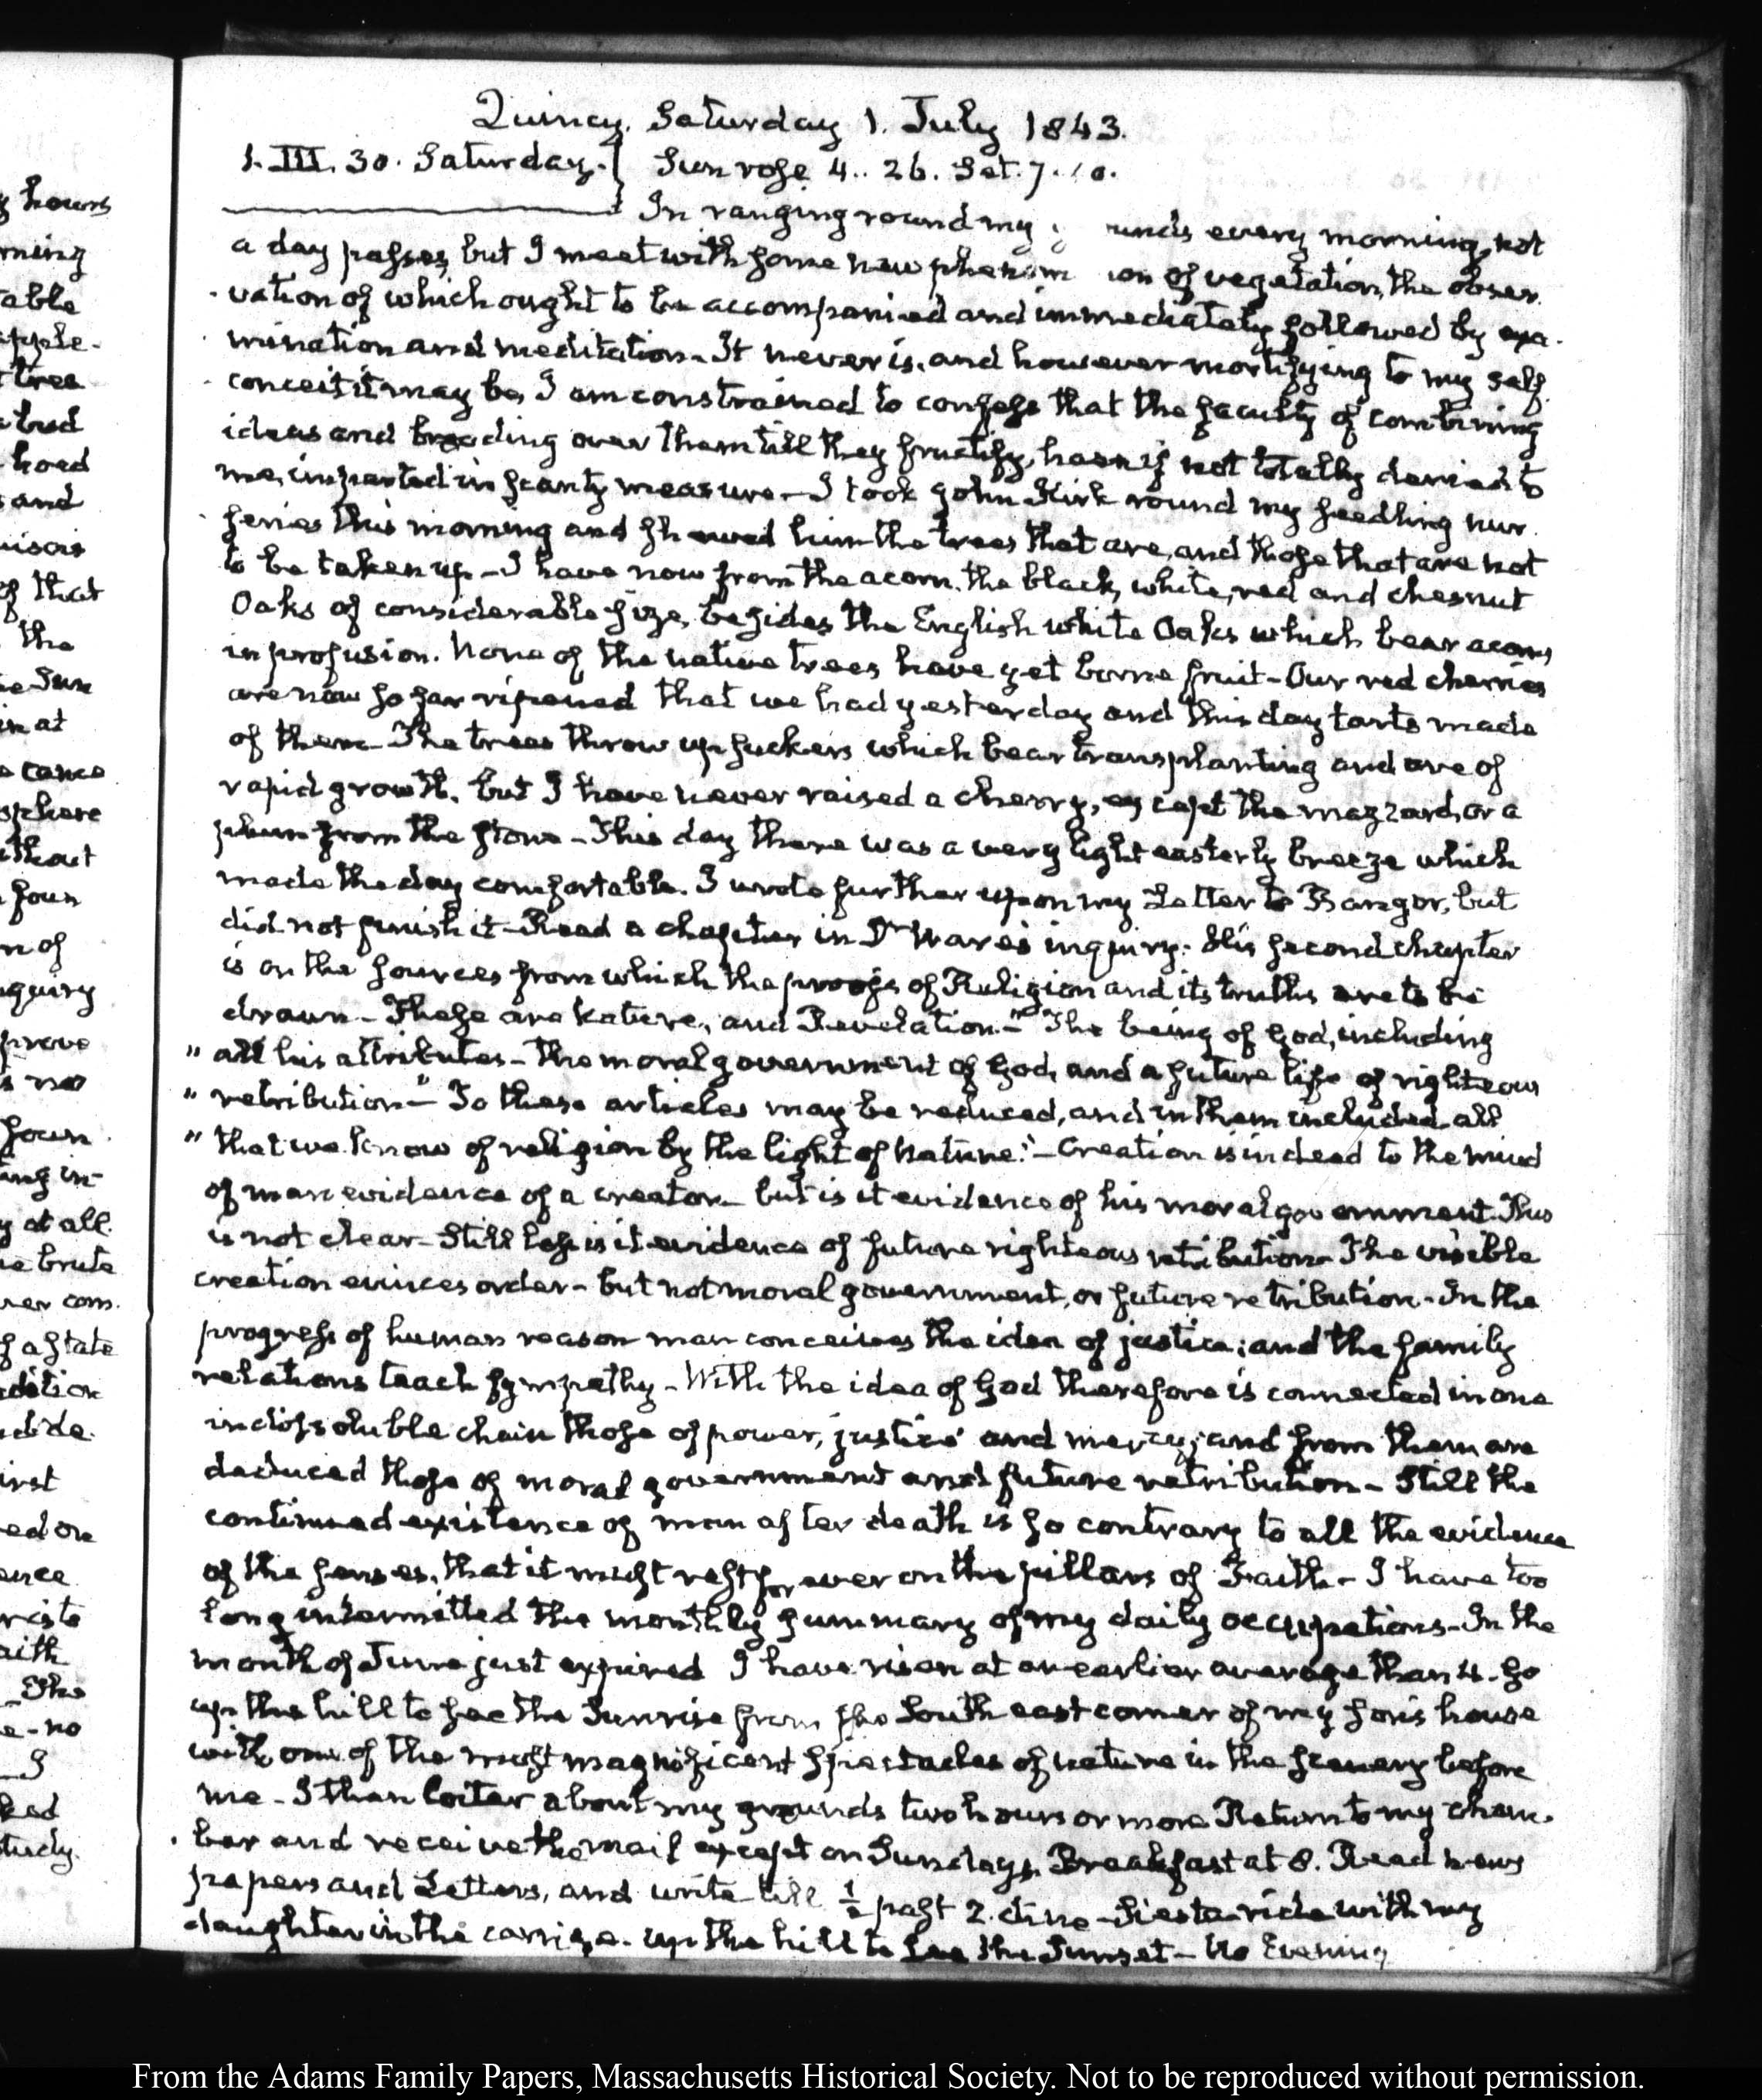 Quincy. Saturday 1. July 1843.
1. III. 30. Saturday. Sun rose 4..26. Set. 7.
In ranging round my unds every morning, not
a day passes, but I meet with some new phenom on of vegetation, the obser
vation of which ought to be accompanied and immediately followed by exa-
mination and meditation. It never is, and however mortifying to my self
conceit it may be, I am constrained to confess that the faculty of combining
ideas and brooding over them till they fructify, has if not totally denied to
me, imparted in scanty measure - I took John Kirk round my seedling nur
series this morning and shewed him the trees that are, and those that are not
to be taken up - I have now from the acorn, the black, white, red and chesnut
Oaks of considerable size, besides the English white Oaks which bear acorns
in profusion. None of the native trees have yet borne fruit - Our red cherries
are now so far ripened that we had yesterday and this day tarts made
of them - The trees throw up suckers which bear transplanting and are of
rapid growth, but I have never raised a cherry, except the mazzard, or a
plum from the stone - This day there was a very light easterly breeze which
made the day comfortable. I wrote further upon my Letter to Bangor, but
did not finish it - Read a chapter in Dr Ware's inquiry. His second chapter
is on the sources from which the proofs of Religion and its truths are to be
drawn - These are Nature, and Revelation - "The being of God, including
" all his attributes - the moral government of God, and a future life of righteous
" retribution" - To these articles may be reduced, and in them included all
" that we know of religion by the light of Nature." - Creation is indeed to the mind
of man evidence of a creator - but is it evidence of his moral government. This
is not clear - Still less is it evidence of future righteous retribution - The visible
creation evinces order - but not moral government, or future retribution - In the
progress of human reason man conceives the idea of justice; and the family
relations teach sympathy - With the idea of God therefore is connected in one
indissoluble chain those of power, justice and mercy; and from them are
deduced those of moral government and future retribution - Still the
continued existence of man after death is so contrary to all the evidence
of the senses, that it must rest for ever on the pillars of Faith - I have too
long intermitted the monthly summary of my daily occupations - In the
month of June just expired I have risen at an earlier average than 4 - Go
up the hill to see the Sunrise from the South east corner of my son's house
with one of the most magnificent spectacles of nature in the scenery before
me - I then loiter about my grounds two hours or more Return to my cham-
ber and receive the mail except on Sundays. Breakfast at 8. Read news
papers and Letters, and write till ½ past 2. dine - Siesta - ride with my
daughter in the carriage - up the hill to see the Sunset - No Evening
hours
rning
able
apple-
tree
bud
hoed
and
of that
the
Sun
in at
sphere
n of
prove
no
ing in-
at all.
brute
com.
of a state
dition
irst
ed on
aith
The
e - no
I
study.
From the Adams Family Papers, Massachusetts Historical Society. Not to be reproduced without permission.